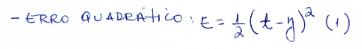 - ERRO QUADRÁTICO: E = 1/2 (t - y)² (1)